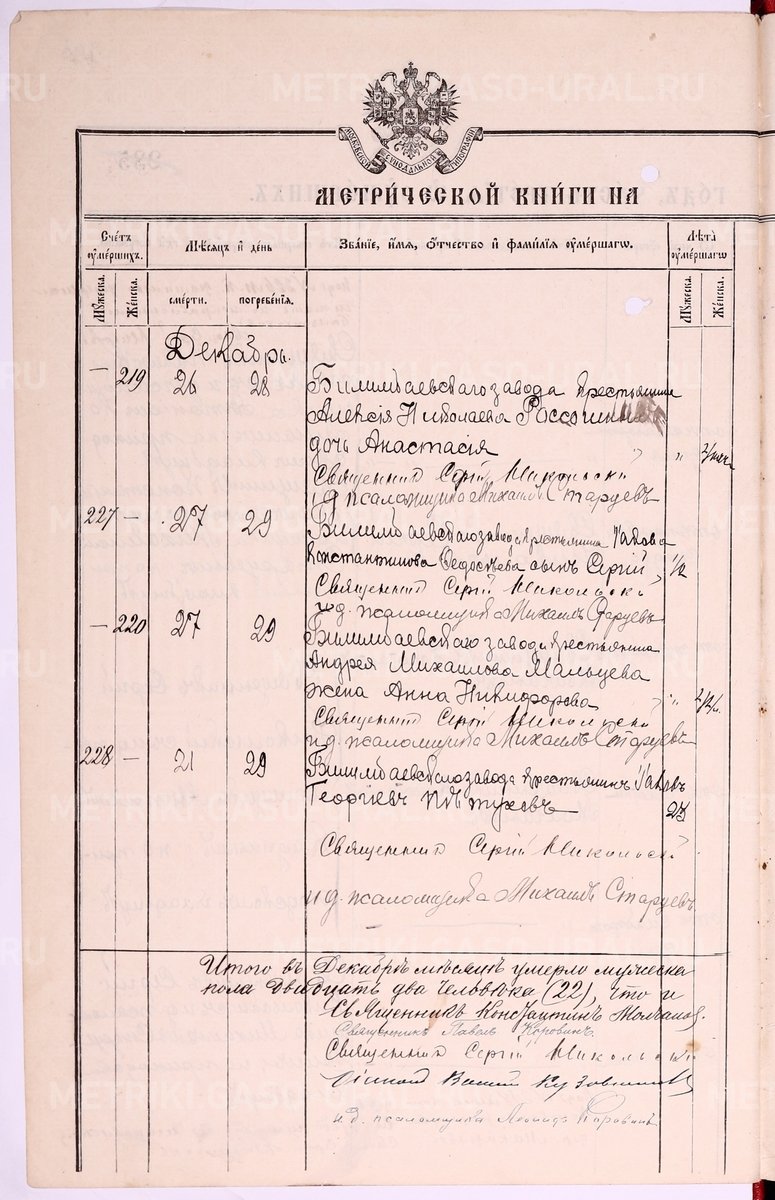 METRIKI-GASO-URAL.RU
МОСКОВСКОЙ СѴНОДАЛЬНОЙ ТИПОГРАФІИ
МЕТРИ́ЧЕСКОЙ КНИ́ГИ НА
Сче́тъ ᲂуме́ршихъ.
Мѣсѧцъ и҆ день
Зва́нїе, и҆́мѧ, ѻ҆́тчество и҆ фами́лїѧ ᲂуме́ршагѡ.
Лѣ́та ᲂуме́ршагѡ
Мꙋ́жеска.
Же́нска.
сме́рти.
погребе́нїѧ.
Мꙋ́жеска.
Же́нска.
Декабрь.
— 219 26 28 Билимбаевскаго завода крестьянина
Алексія Николаева
дочь Анастасія " 2/мес
Священникъ Сергій Никольскій
и д. псаломщика Михаилъ Старцевъ
227 — 27 29 Билимбаевскаго завода крестьянина Іакова
Константинова Ѳедосѣева сынъ Сергій 1/2
Священникъ Сергій Никольскій
и д. псаломщика Михаилъ Старцевъ
— 220 27 29 Билимбаевскаго завода крестьянина
Андрея Михаилова Мальцева
жена Анна Никифорова "
Священникъ Сергій Никольскій
и д. псаломщика Михаилъ Старцевъ
228 — 21 29 Билимбаевскаго завода крестьянинъ Іаковъ
Георгіевъ Пѣтуховъ 23
Священникъ Сергій Никольскій
и д. псаломщика Михаилъ Старцевъ
Итого въ Декабрѣ мѣсяцѣ умерло мужеска
пола двадцать два человѣка (22), что и
Священникъ Константинъ Молчановъ.
Священникъ Павелъ Коровинъ.
Священникъ Сергій Никольскій
и. д. псаломщика Леонидъ Коровинъ